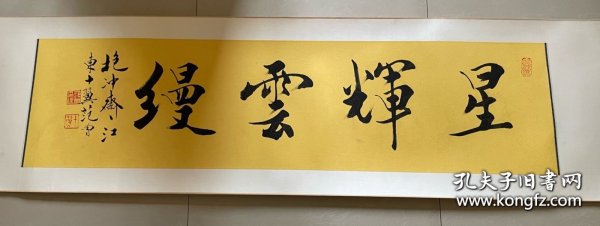 星輝雲縵
抱冲齋江
東十翼范曾
孔夫子旧书网
www.kongfz.com